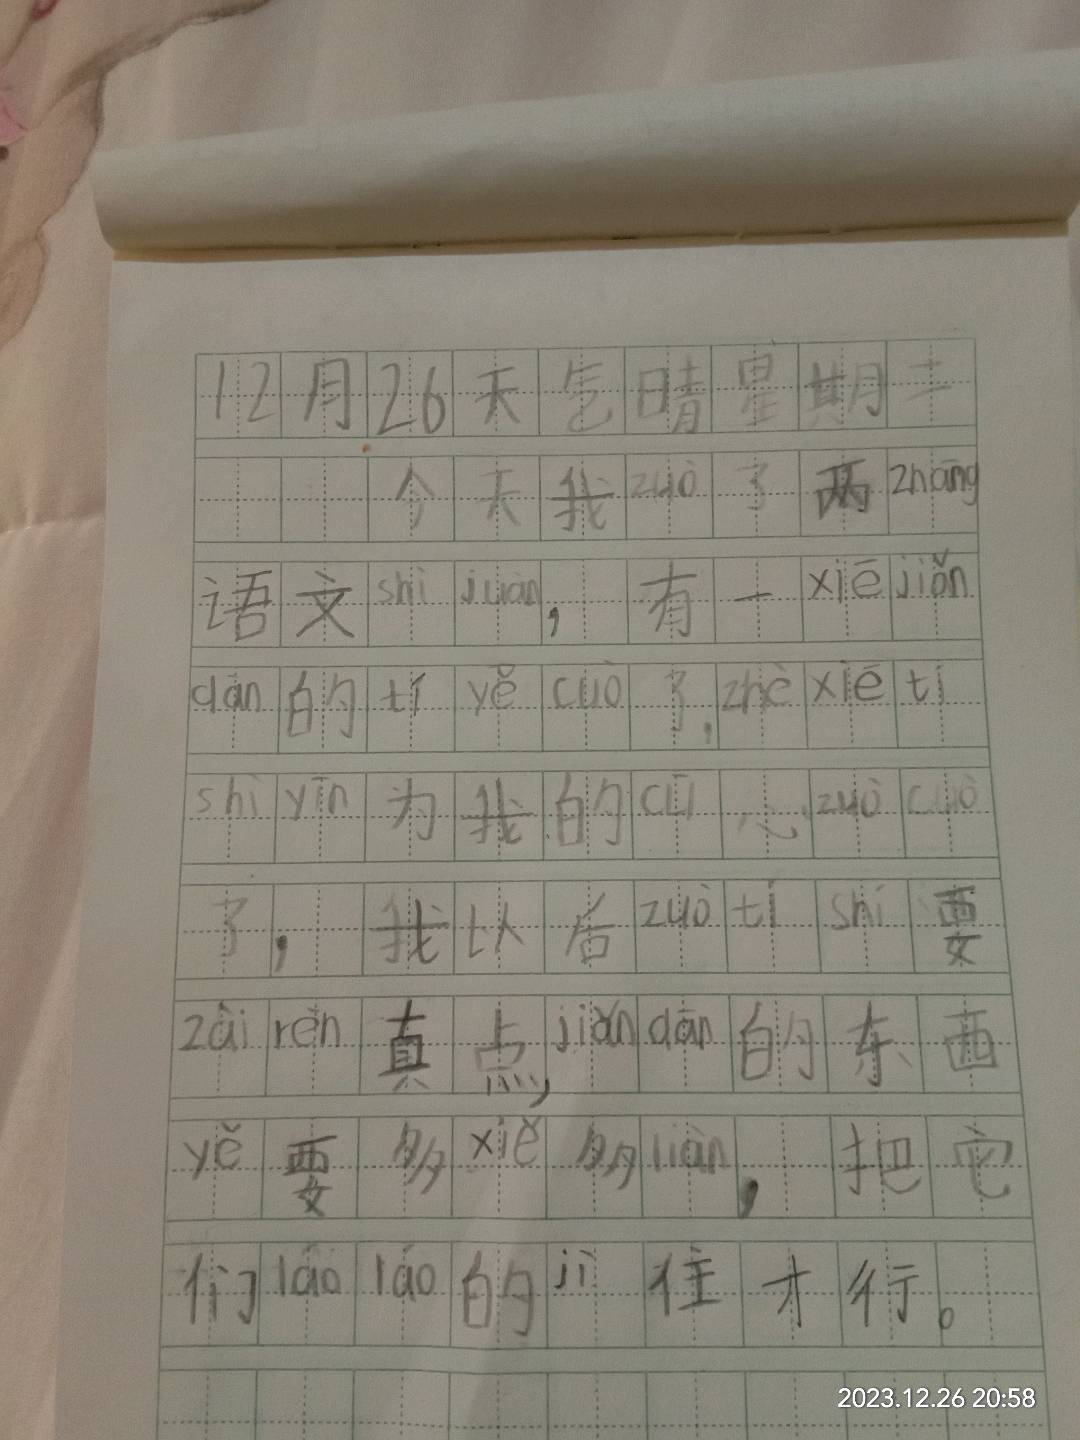 12月26天气晴星期二
今天我zuò了两zhāng
语文shì juàn，有一xiē jiǎn
dān的tí yě cuò了，zhè xiē tí
shì yīn为我的cū心zuò cuò
了，我以后zuò tí shí要
zài rèn真点，jiǎn dān的东西
yě要多xiě多liàn，把它
们láo láo的jì住才行。
2023.12.26 20:58